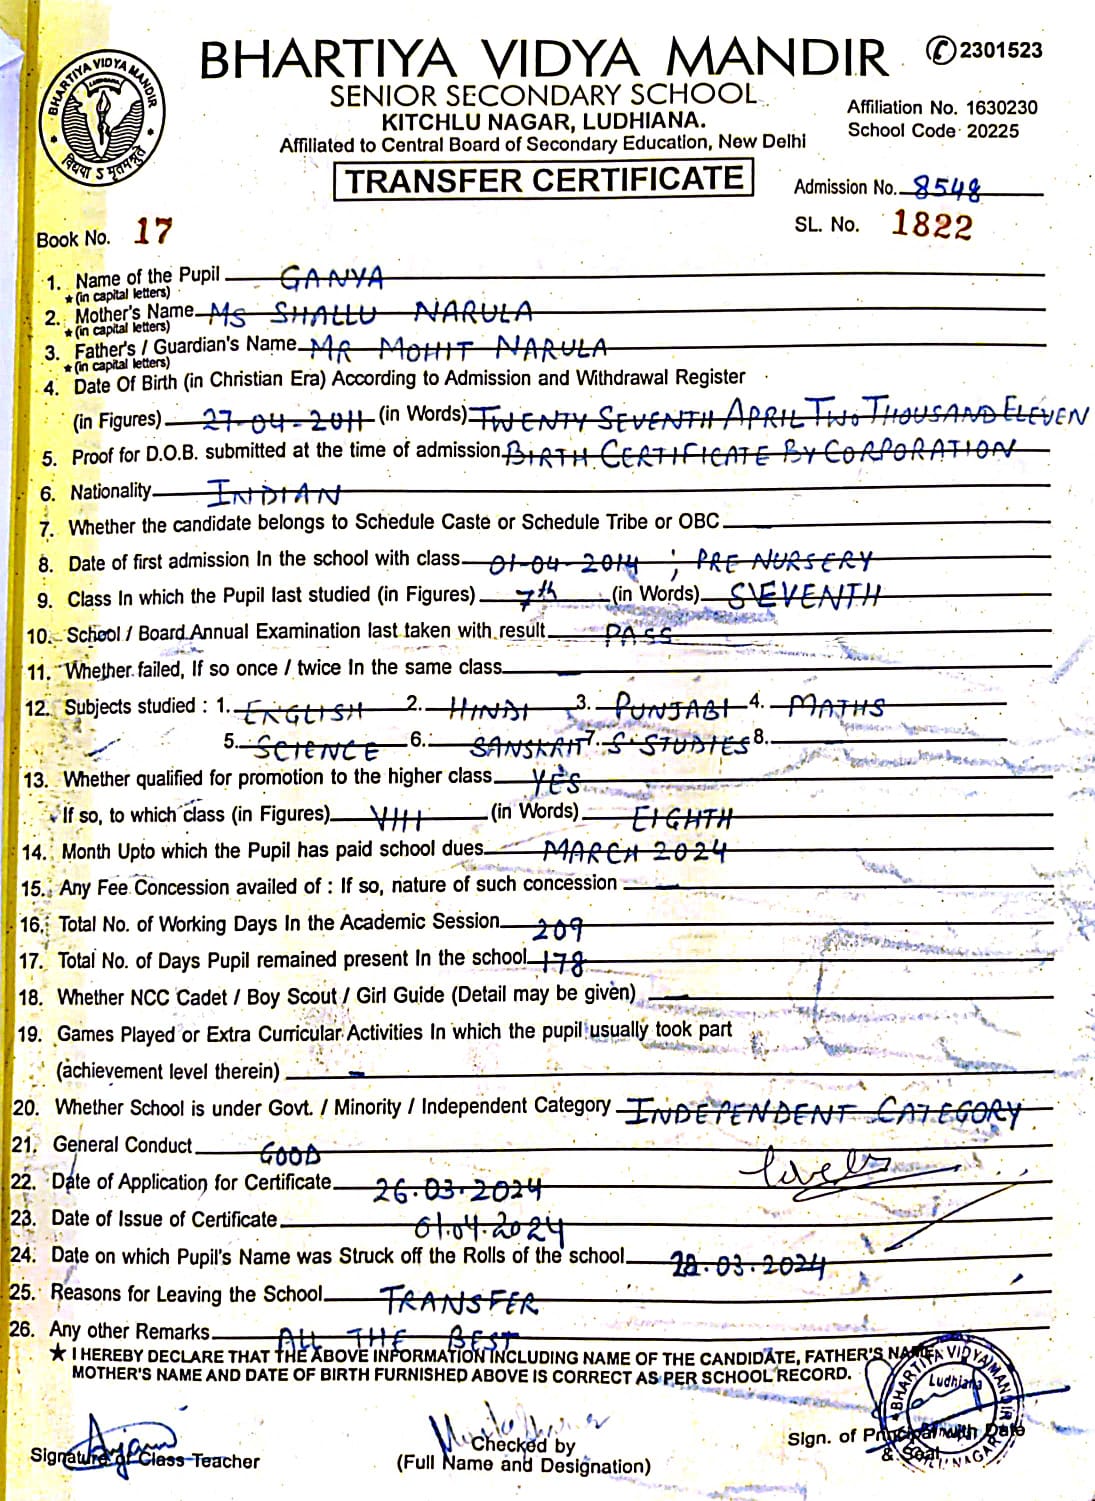 BHARTIYA VIDYA MANDIR
विद्यया ऽ मृतमश्नुते
BHARTIYA VIDYA MANDIR ✆2301523
SENIOR SECONDARY SCHOOL
KITCHLU NAGAR, LUDHIANA.
Affiliated to Central Board of Secondary Education, New Delhi
Affiliation No. 1630230
School Code 20225
TRANSFER CERTIFICATE
Admission No. 8548
Book No. 17
SL. No. 1822
1. Name of the Pupil GANYA
★(in capital letters)
2. Mother's Name MS SHALLU NARULA
★(in capital letters)
3. Father's / Guardian's Name MR MOHIT NARULA
★(in capital letters)
4. Date Of Birth (in Christian Era) According to Admission and Withdrawal Register
(in Figures) 27-04-2011 (in Words) TWENTY SEVENTH APRIL TWO THOUSAND ELEVEN
5. Proof for D.O.B. submitted at the time of admission BIRTH CERTIFICATE BY CORPORATION
6. Nationality INDIAN
7. Whether the candidate belongs to Schedule Caste or Schedule Tribe or OBC —
8. Date of first admission In the school with class 01-04-2014 ; PRE NURSERY
9. Class In which the Pupil last studied (in Figures) 7th (in Words) SEVENTH
10. School / Board Annual Examination last taken with result PASS
11. Whether failed, If so once / twice In the same class —
12. Subjects studied : 1. ENGLISH 2. HINDI 3. PUNJABI 4. MATHS
5. SCIENCE 6. SANSKRIT 7. S.STUDIES 8.
13. Whether qualified for promotion to the higher class YES
If so, to which class (in Figures) VIII (in Words) EIGHTH
14. Month Upto which the Pupil has paid school dues MARCH 2024
15. Any Fee Concession availed of : If so, nature of such concession —
16. Total No. of Working Days In the Academic Session 209
17. Total No. of Days Pupil remained present In the school 178
18. Whether NCC Cadet / Boy Scout / Girl Guide (Detail may be given) —
19. Games Played or Extra Curricular Activities In which the pupil usually took part
(achievement level therein) —
20. Whether School is under Govt. / Minority / Independent Category INDEPENDENT CATEGORY
21. General Conduct GOOD
22. Date of Application for Certificate 26.03.2024
23. Date of Issue of Certificate 01.04.2024
24. Date on which Pupil's Name was Struck off the Rolls of the school 28.03.2024
25. Reasons for Leaving the School TRANSFER
26. Any other Remarks ALL THE BEST
★ I HEREBY DECLARE THAT THE ABOVE INFORMATION INCLUDING NAME OF THE CANDIDATE, FATHER'S NAME
MOTHER'S NAME AND DATE OF BIRTH FURNISHED ABOVE IS CORRECT AS PER SCHOOL RECORD.
BHARTIYA VIDYA MANDIR
Ludhiana
Signature of Class Teacher
Checked by
(Full Name and Designation)
Sign. of Principal with Date
& Seal